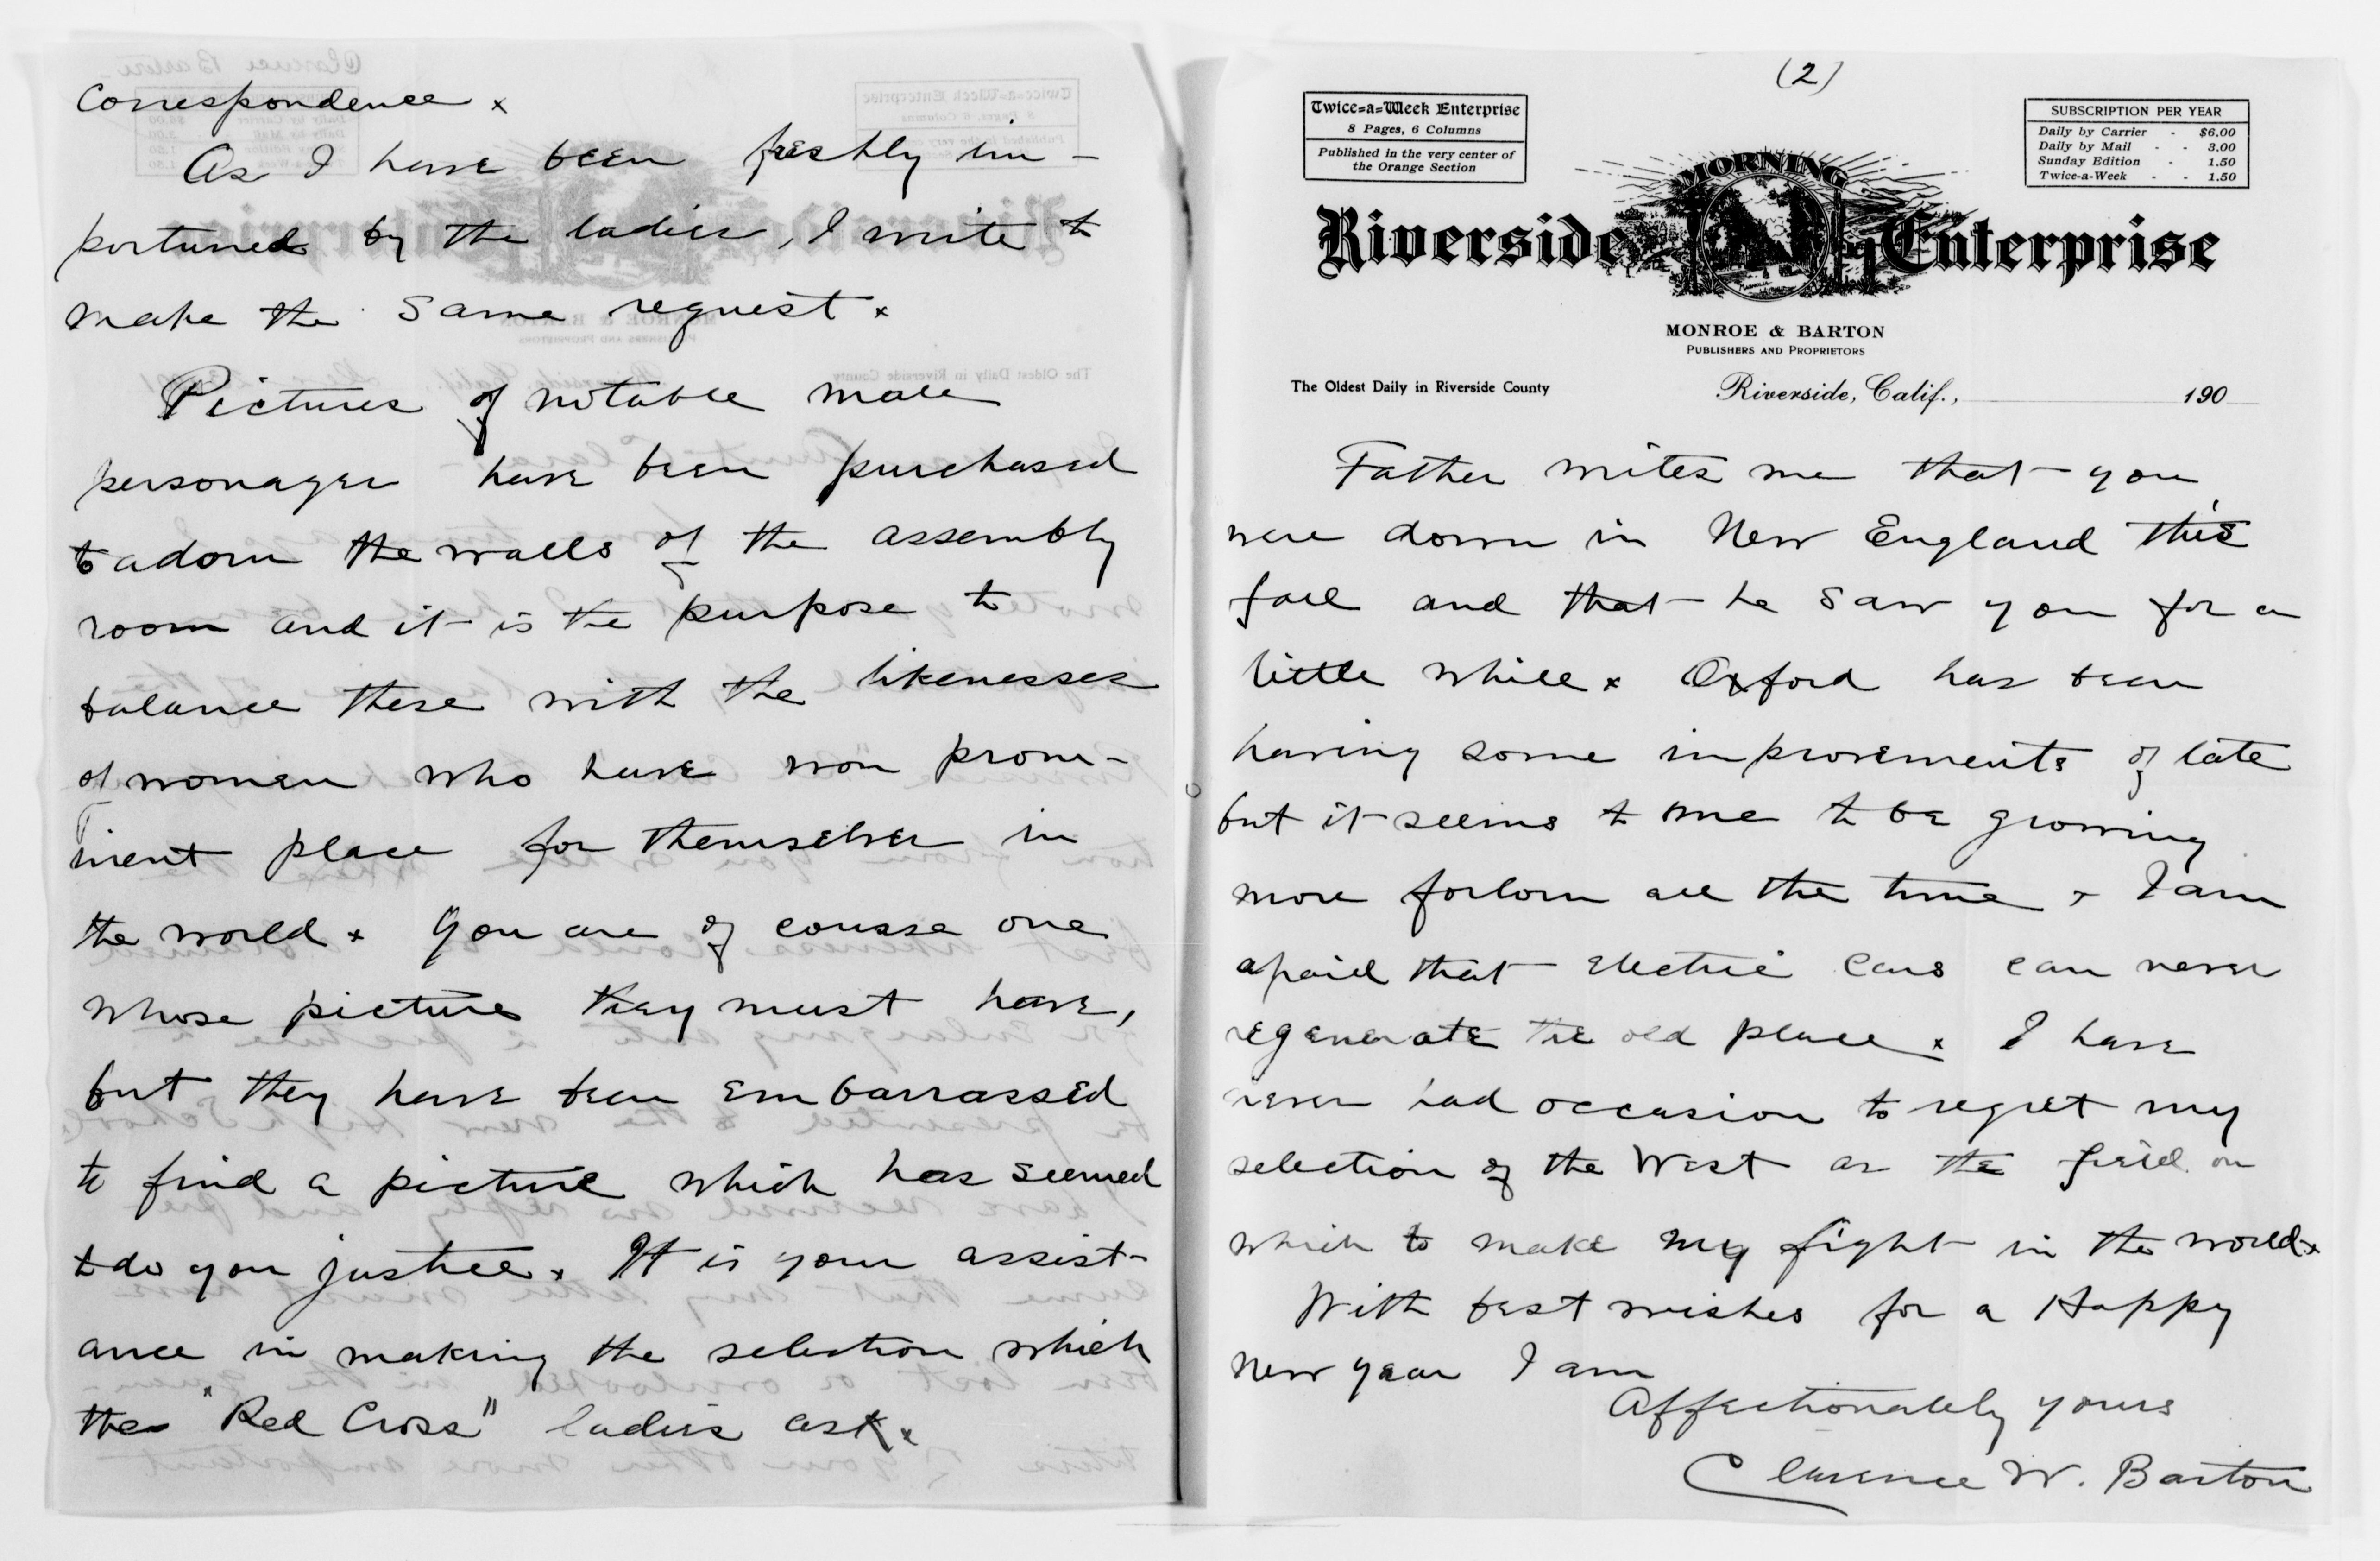 Correspondence x
As I have been freshly im-
portuned by the ladies, I write to
make the same request x
Pictures of notable male
personages have been purchased
to adorn the walls of the assembly
room and it is the purpose to
balance these with the likenesses
of women who have won prom-
inent place for themselves in
the world x You are of course one
whose picture they must have,
but they have been embarrassed
to find a picture which has seemed
to do you justice x It is your assist-
ance in making the selection which
the "Red Cross" ladies ask x
(2)
Twice=a=Week Enterprise
8 Pages, 6 Columns
Published in the very center of
the Orange Section
SUBSCRIPTION PER YEAR
Daily by Carrier - $6.00
Daily by Mail - - 3.00
Sunday Edition - 1.50
Twice-a-Week - - 1.50
MORNING
Riverside Enterprise
MAGNOLIA
MONROE & BARTON
PUBLISHERS AND PROPRIETORS
The Oldest Daily in Riverside County
Riverside, Calif., 190
Father writes me that you
were down in New England this
fall and that he saw you for a
little while x Oxford has been
having some improvements of late
but it seems to me to be growing
more forlorn all the time x I am
afraid that electric cars can never
regenerate the old place x I have
never had occasion to regret my
selection of the West as the field on
which to make my fight in the world x
With best wishes for a Happy
New Year I am
Affectionately yours
Clarence W. Barton